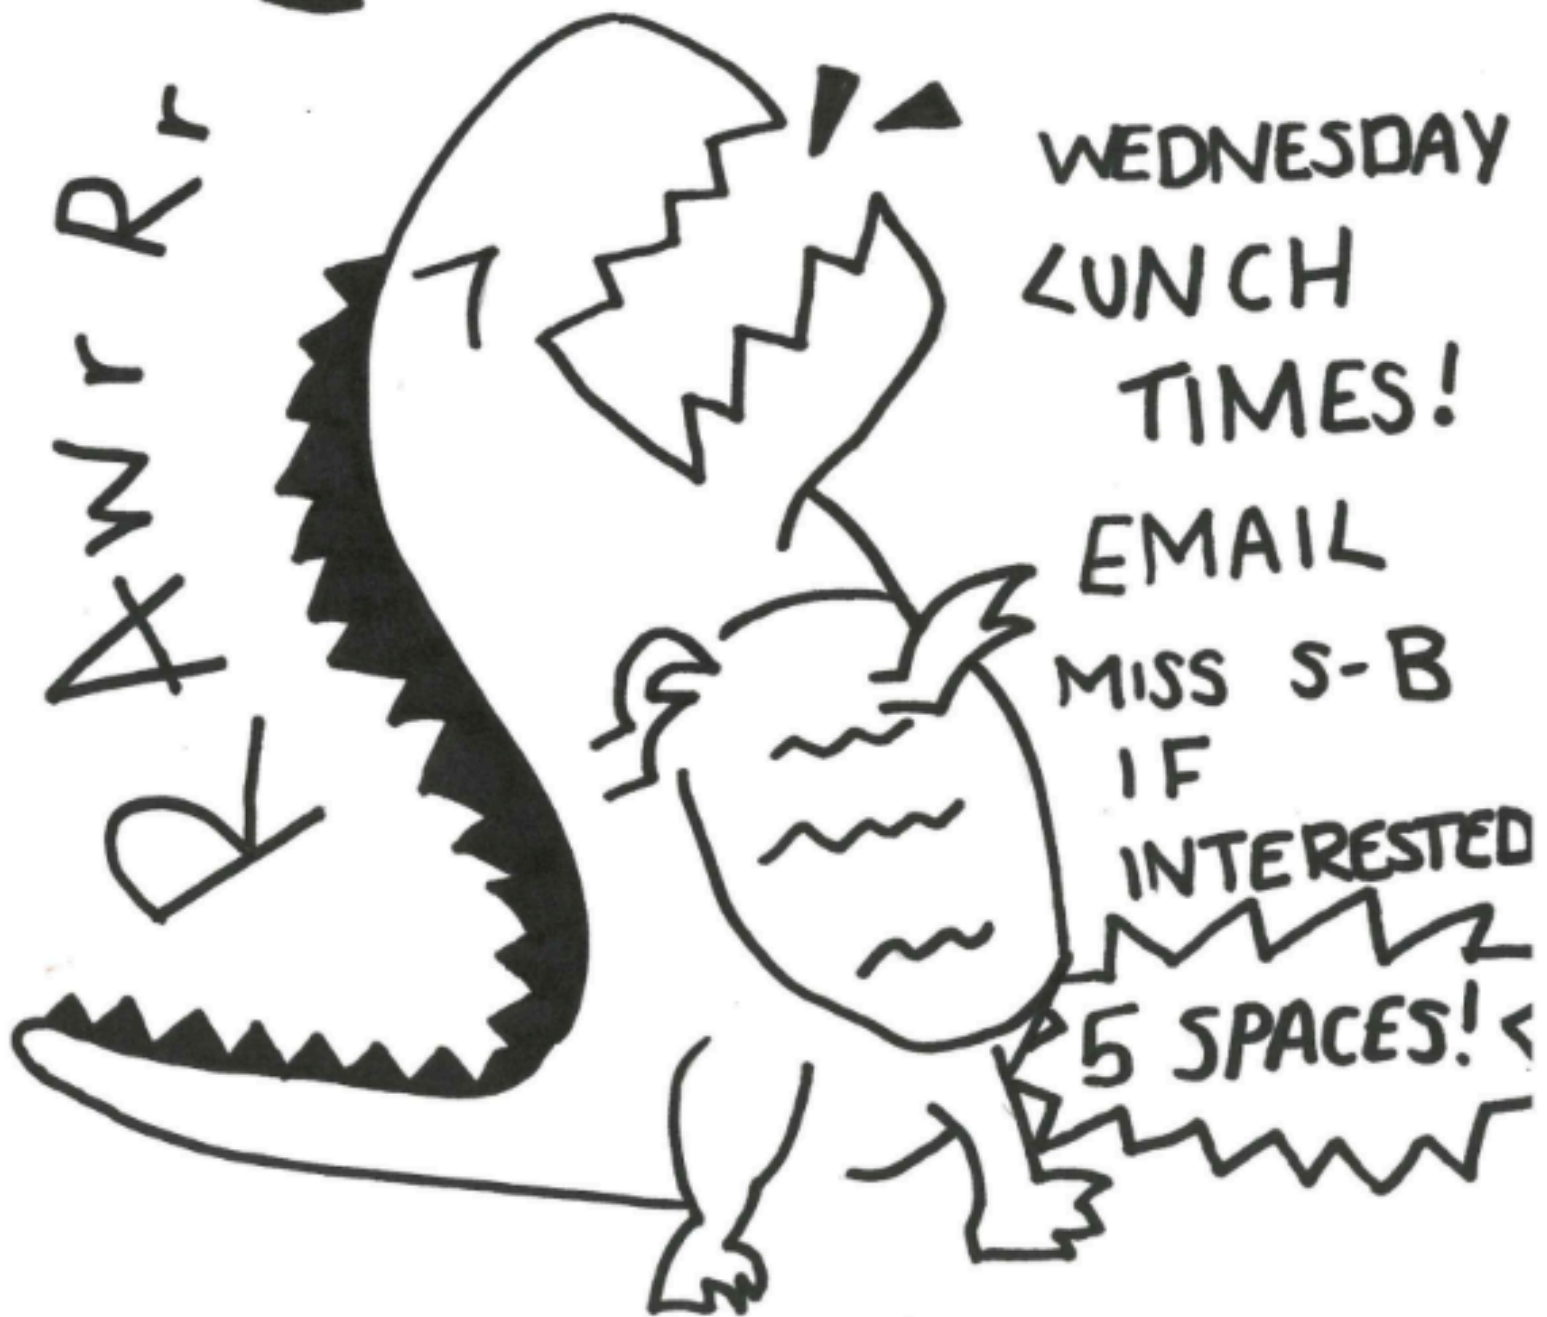 RAWrRr
WEDNESDAY
LUNCH
TIMES!
EMAIL
MISS S-B
IF
INTERESTED
5 SPACES!